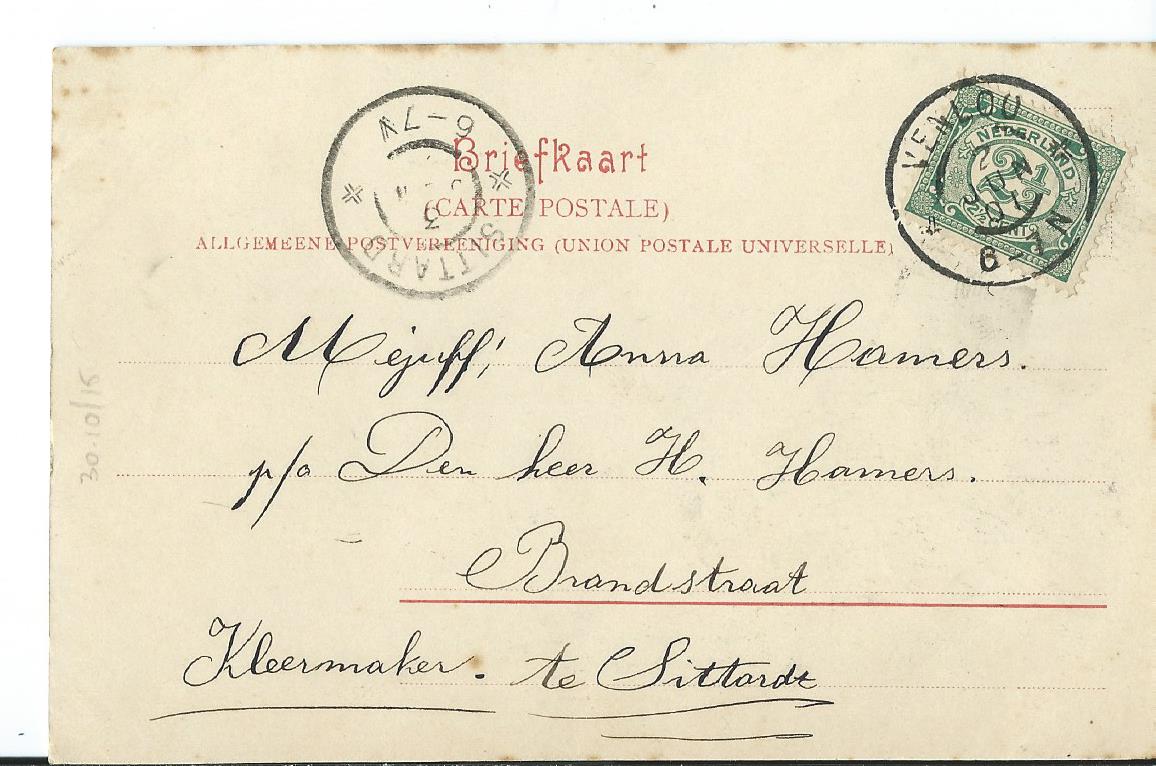 Briefkaart
(CARTE POSTALE)
ALLGEMEENE POSTVEREENIGING (UNION POSTALE UNIVERSELLE)
6-7N
SITTARD
3
VENLOO
6-7N
NEDERLAND
2½
2½ CENT
Mejuff, Anna Hamers.
p/a Den heer H. Hamers.
Brandstraat
Kleermaker. te Sittard
30-10/15